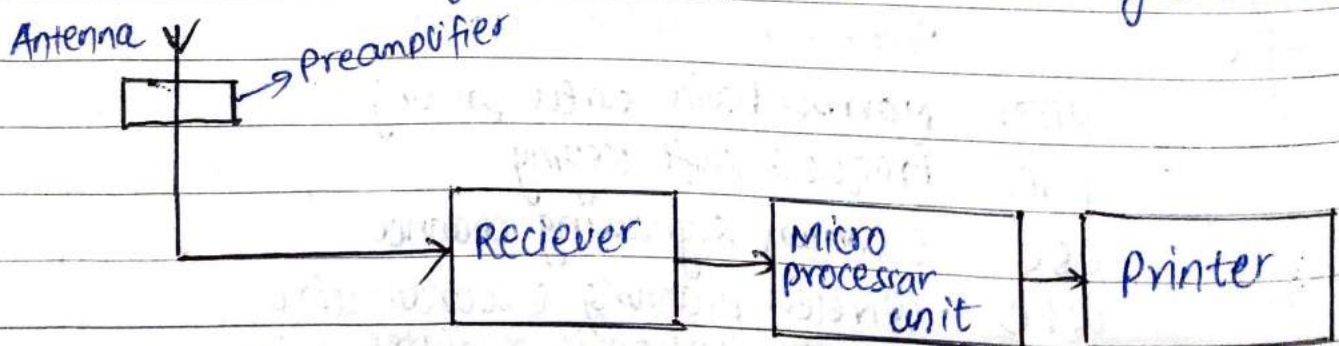 Antenna
Preamplifier
Reciever
Micro
processar
unit
Printer